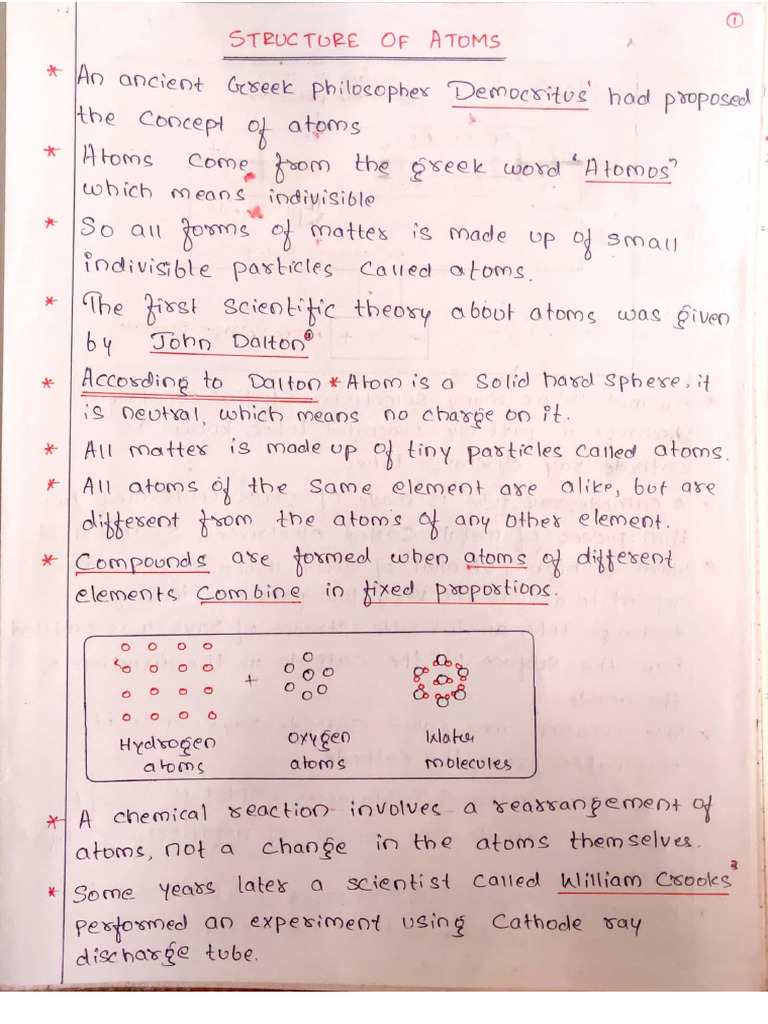 1
STRUCTURE OF ATOMS
* An ancient Greek philosopher Democritus' had proposed
the concept of atoms
* Atoms come from the greek word 'Atomos'
which means indivisible
* So all forms of matter is made up of small
indivisible particles called atoms.
* The first scientific theory about atoms was given
by John Dalton
* According to Dalton * Atom is a solid hard sphere, it
is neutral, which means no charge on it.
* All matter is made up of tiny particles called atoms.
* All atoms of the same element are alike, but are
different from the atoms of any other element.
* Compounds are formed when atoms of different
elements combine in fixed proportions.
+
Hydrogen atoms
Oxygen atoms
Water molecules
* A chemical reaction involves a rearrangement of
atoms, not a change in the atoms themselves.
* Some years later a scientist called William Crooks 3
performed an experiment using Cathode ray
discharge tube.